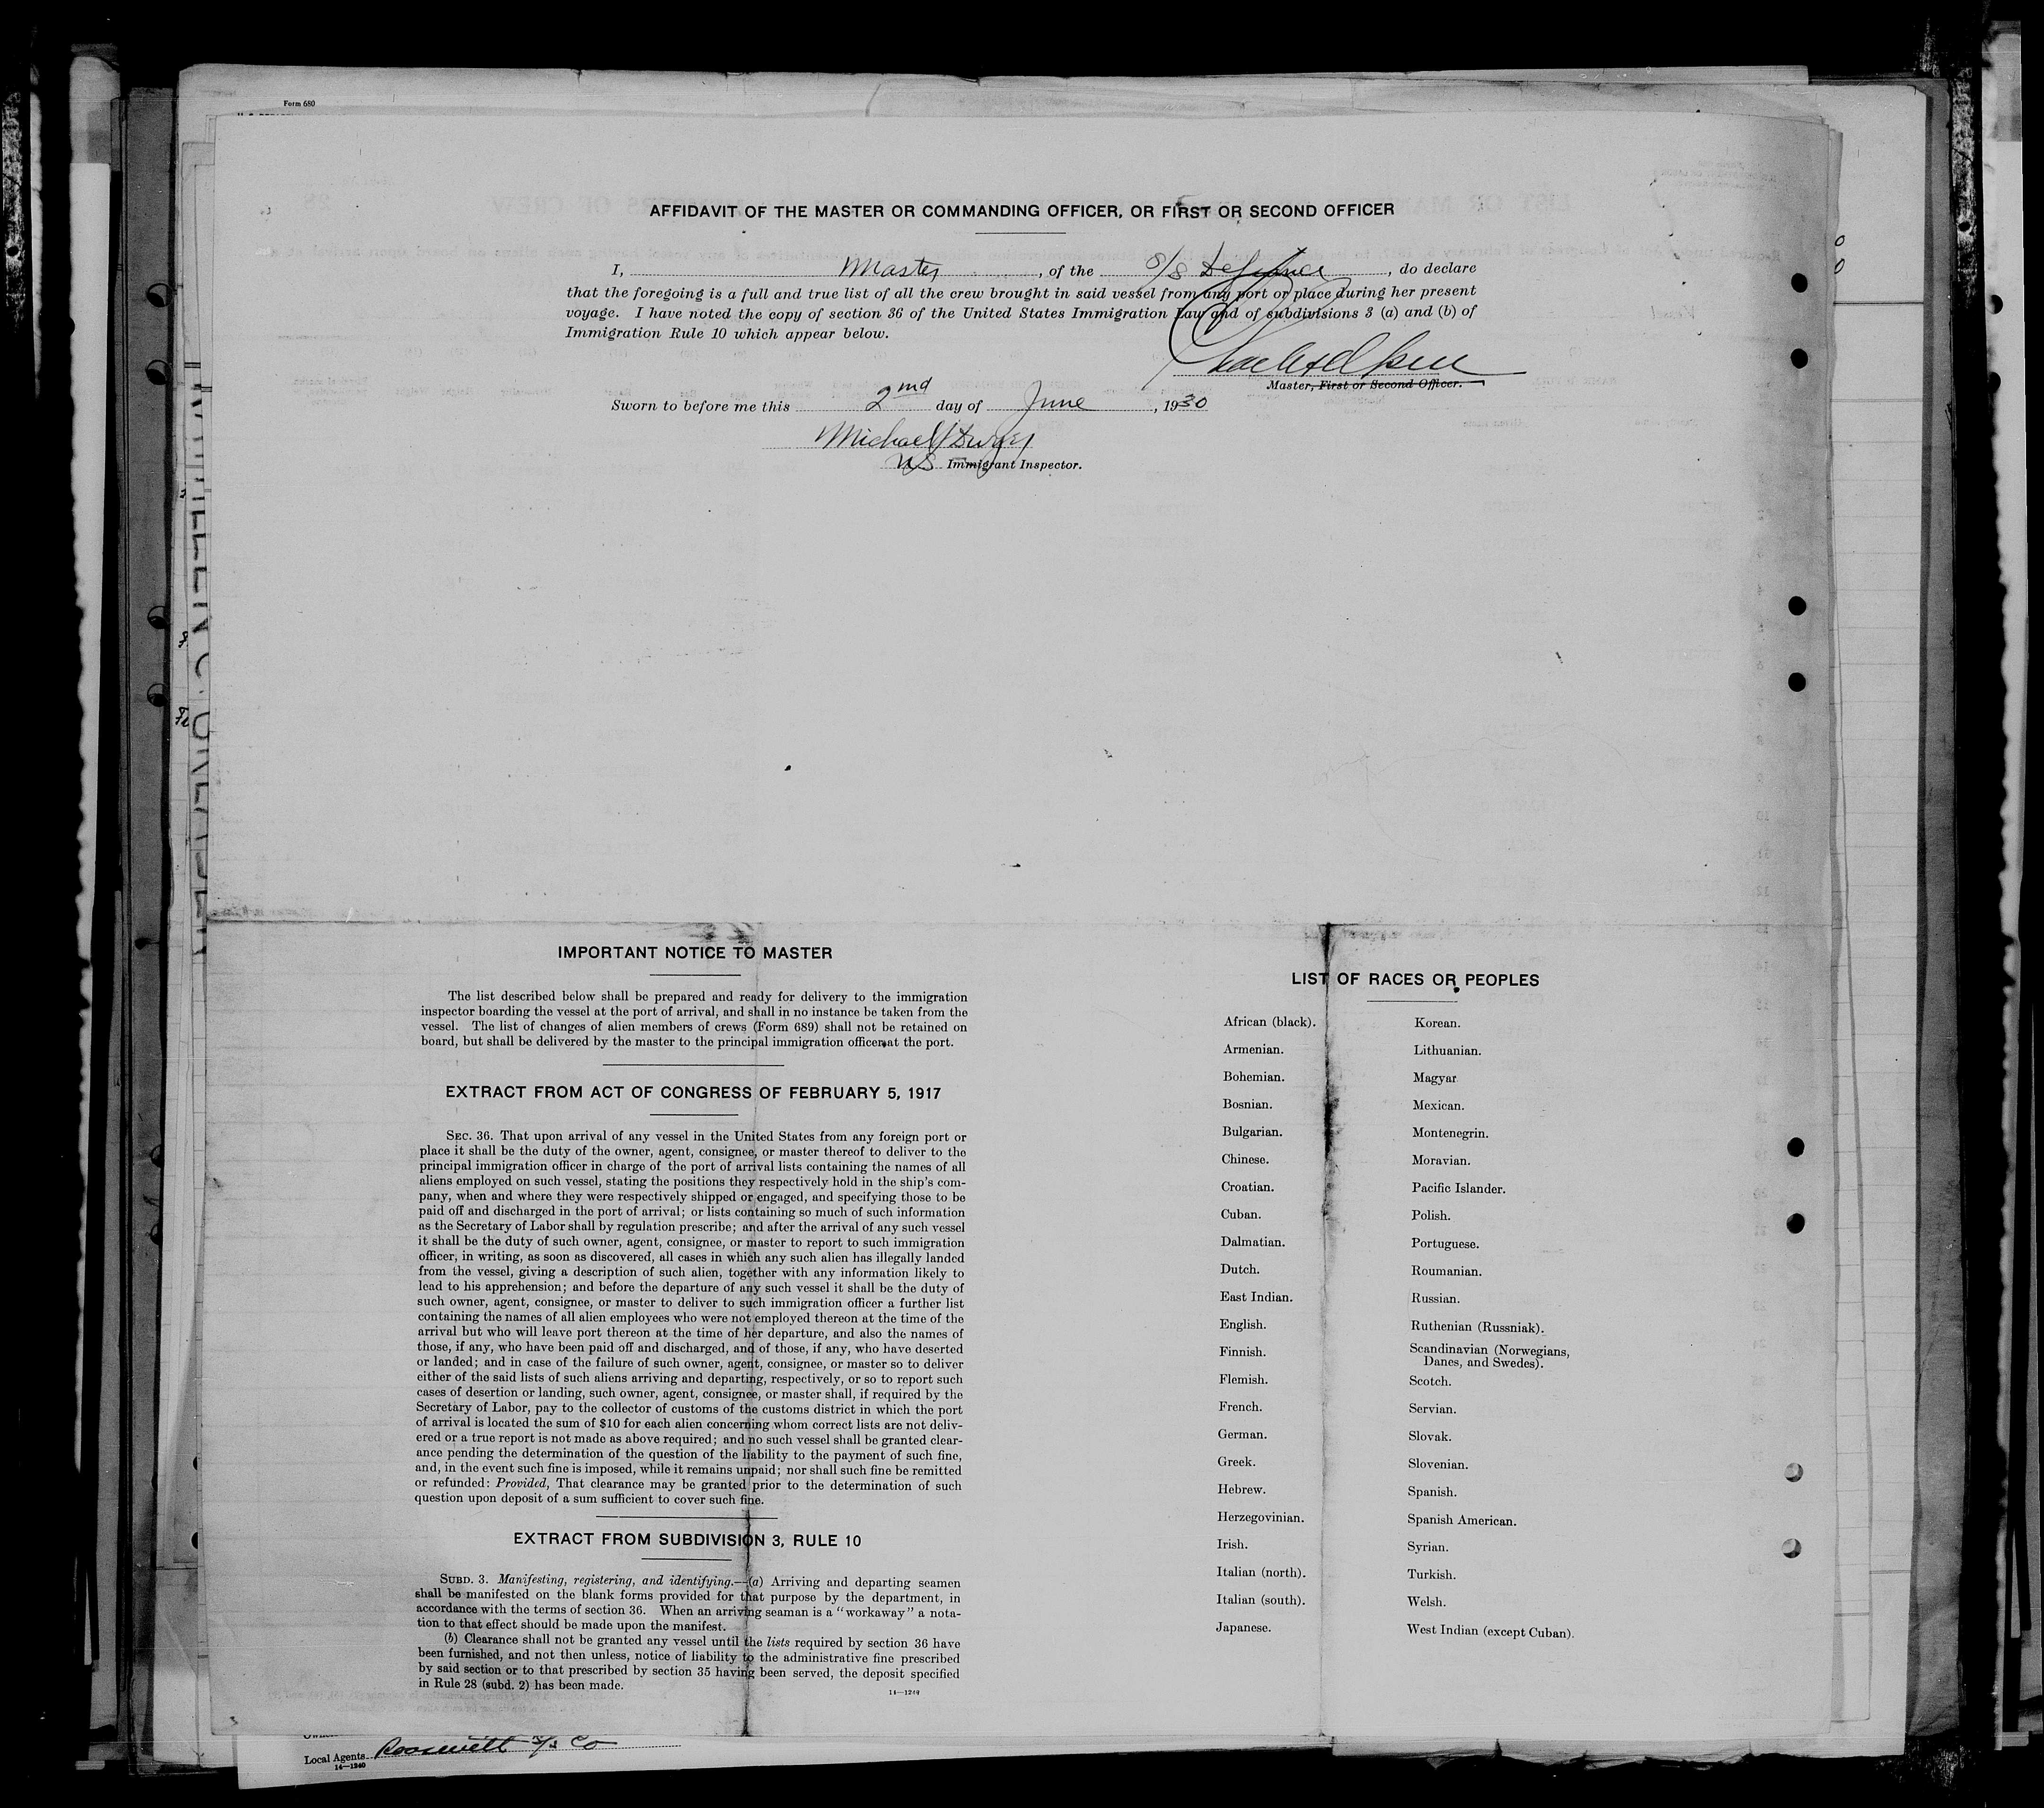 Form 680
AFFIDAVIT OF THE MASTER OR COMMANDING OFFICER, OR FIRST OR SECOND OFFICER
I, Master, of the S/S, do declare
that the foregoing is a full and true list of all the crew brought in said vessel from any port or place during her present
voyage. I have noted the copy of section 36 of the United States Immigration Law and of subdivisions 3 (a) and (b) of
Immigration Rule 10 which appear below.
Master, First or Second Officer.
Sworn to before me this 2nd day of June, 1930
Michael
US Immigrant Inspector.
IMPORTANT NOTICE TO MASTER
The list described below shall be prepared and ready for delivery to the immigration
inspector boarding the vessel at the port of arrival, and shall in no instance be taken from the
vessel. The list of changes of alien members of crews (Form 689) shall not be retained on
board, but shall be delivered by the master to the principal immigration officer at the port.
EXTRACT FROM ACT OF CONGRESS OF FEBRUARY 5, 1917
SEC. 36. That upon arrival of any vessel in the United States from any foreign port or
place it shall be the duty of the owner, agent, consignee, or master thereof to deliver to the
principal immigration officer in charge of the port of arrival lists containing the names of all
aliens employed on such vessel, stating the positions they respectively hold in the ship's com-
pany, when and where they were respectively shipped or engaged, and specifying those to be
paid off and discharged in the port of arrival; or lists containing so much of such information
as the Secretary of Labor shall by regulation prescribe; and after the arrival of any such vessel
it shall be the duty of such owner, agent, consignee, or master to report to such immigration
officer, in writing, as soon as discovered, all cases in which any such alien has illegally landed
from the vessel, giving a description of such alien, together with any information likely to
lead to his apprehension; and before the departure of any such vessel it shall be the duty of
such owner, agent, consignee, or master to deliver to such immigration officer a further list
containing the names of all alien employees who were not employed thereon at the time of the
arrival but who will leave port thereon at the time of her departure, and also the names of
those, if any, who have been paid off and discharged, and of those, if any, who have deserted
or landed; and in case of the failure of such owner, agent, consignee, or master so to deliver
either of the said lists of such aliens arriving and departing, respectively, or so to report such
cases of desertion or landing, such owner, agent, consignee, or master shall, if required by the
Secretary of Labor, pay to the collector of customs of the customs district in which the port
of arrival is located the sum of $10 for each alien concerning whom correct lists are not deliv-
ered or a true report is not made as above required; and no such vessel shall be granted clear-
ance pending the determination of the question of the liability to the payment of such fine,
and, in the event such fine is imposed, while it remains unpaid; nor shall such fine be remitted
or refunded: Provided, That clearance may be granted prior to the determination of such
question upon deposit of a sum sufficient to cover such fine.
EXTRACT FROM SUBDIVISION 3, RULE 10
SUBD. 3. Manifesting, registering, and identifying.—(a) Arriving and departing seamen
shall be manifested on the blank forms provided for that purpose by the department, in
accordance with the terms of section 36. When an arriving seaman is a "workaway" a nota-
tion to that effect should be made upon the manifest.
(b) Clearance shall not be granted any vessel until the lists required by section 36 have
been furnished, and not then unless, notice of liability to the administrative fine prescribed
by said section or to that prescribed by section 35 having been served, the deposit specified
in Rule 28 (subd. 2) has been made.
14—1240
LIST OF RACES OR PEOPLES
African (black).
Armenian.
Bohemian.
Bosnian.
Bulgarian.
Chinese.
Croatian.
Cuban.
Dalmatian.
Dutch.
East Indian.
English.
Finnish.
Flemish.
French.
German.
Greek.
Hebrew.
Herzegovinian.
Irish.
Italian (north).
Italian (south).
Japanese.
Korean.
Lithuanian.
Magyar
Mexican.
Montenegrin.
Moravian.
Pacific Islander.
Polish.
Portuguese.
Roumanian.
Russian.
Ruthenian (Russniak).
Scandinavian (Norwegians,
Danes, and Swedes).
Scotch.
Servian.
Slovak.
Slovenian.
Spanish.
Spanish American.
Syrian.
Turkish.
Welsh.
West Indian (except Cuban).
Local Agents Roosevelt S/S Co
14—1240